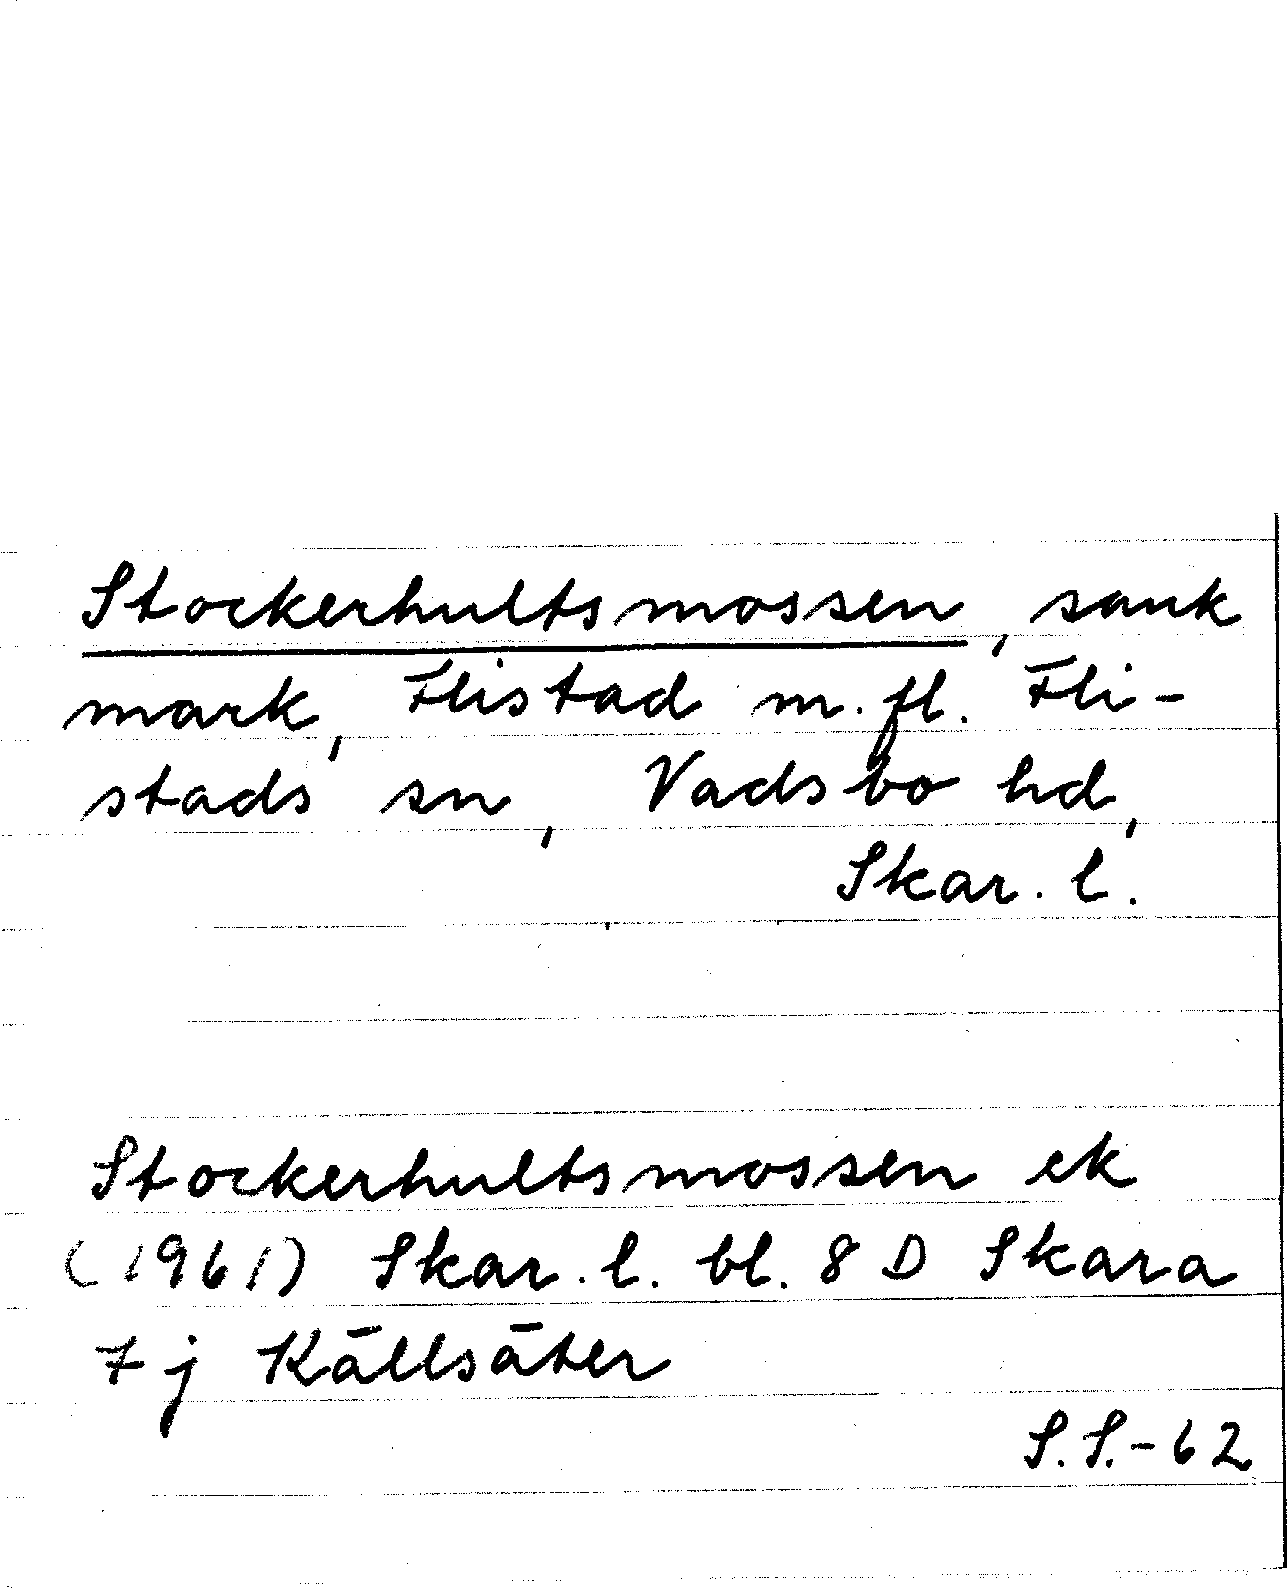 Stockerhultsmossen, sank
mark, Flistad m.fl. Fli-
stads sn, Vadsbo hd,
Skar. l.
Stockerhultsmossen ek
(1961) Skar. l. bl. 8 D Skara
7 j Källsäter
S.S.-62